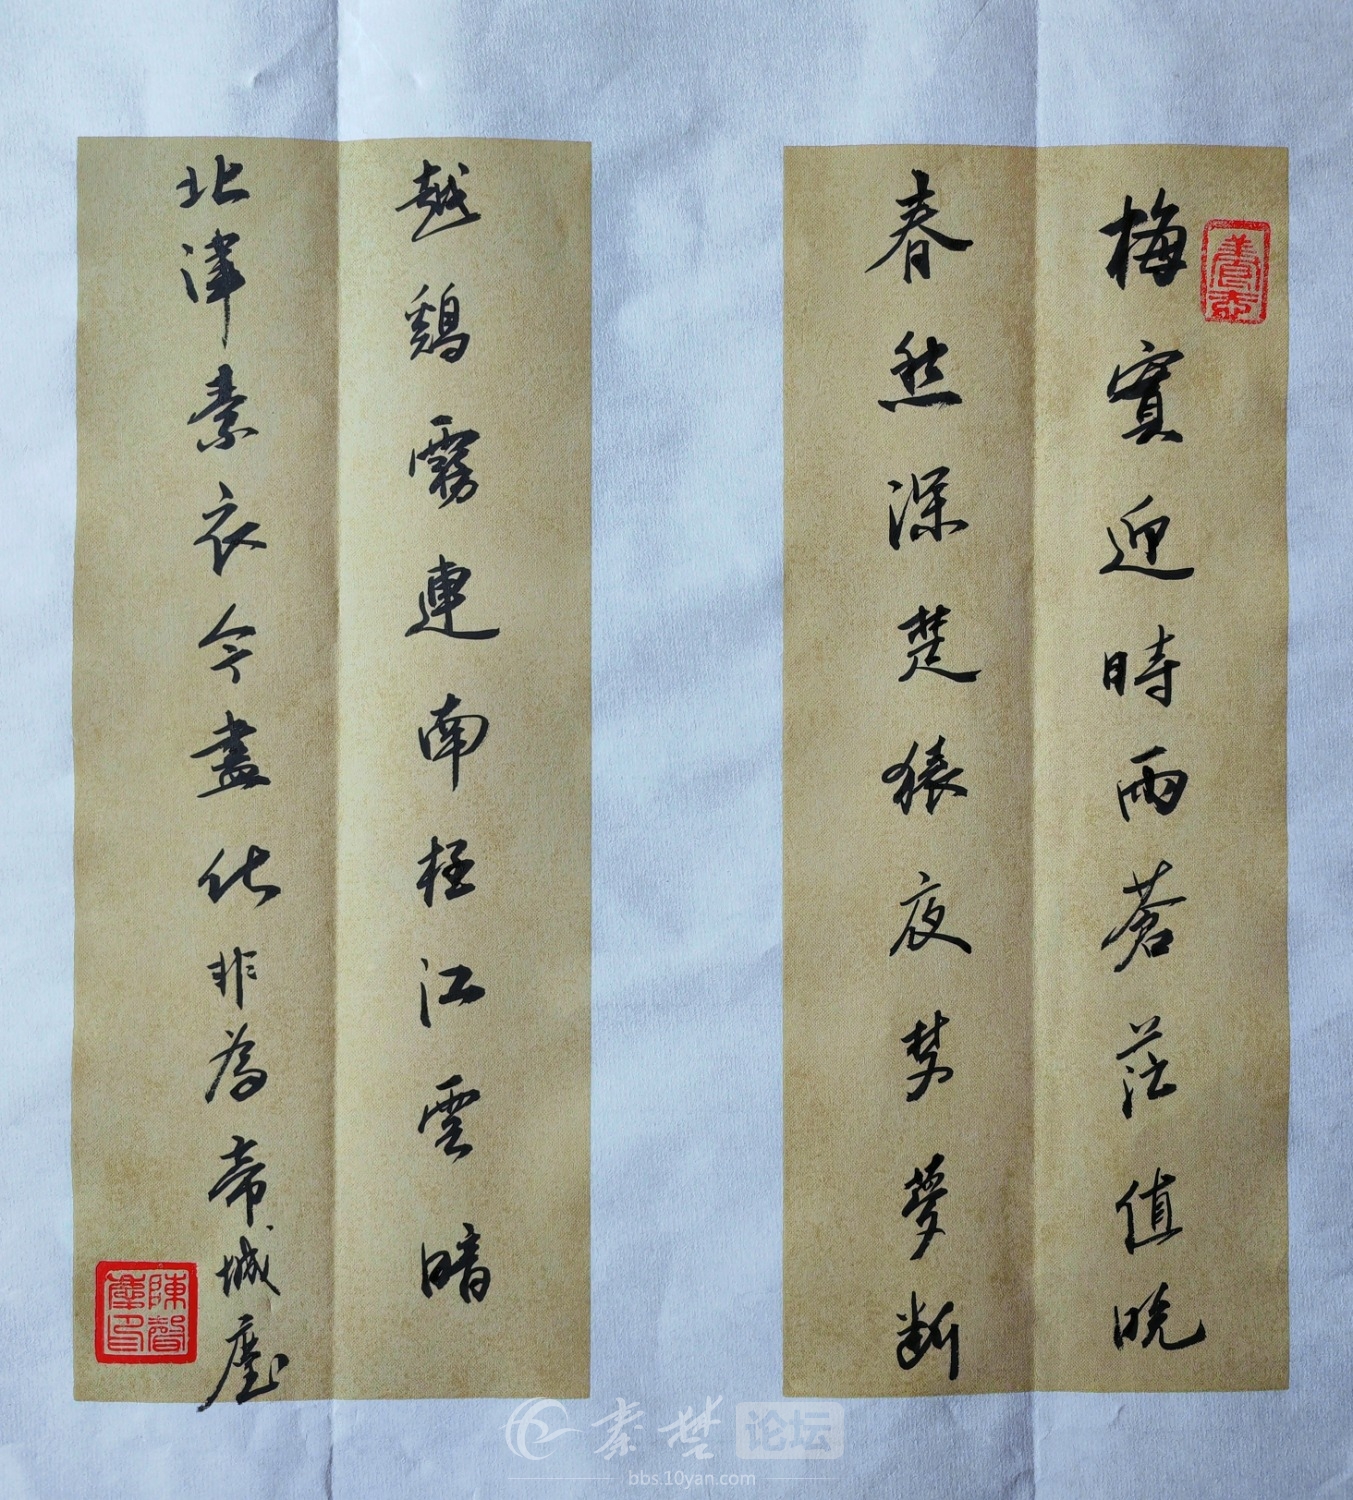 梅實迎時雨蒼茫值晚
春愁深楚猿夜梦夢断
越鷄霧連南極江雲暗
北津素衣今盡化非為帝城塵
秦楚论坛
bbs.10yan.com